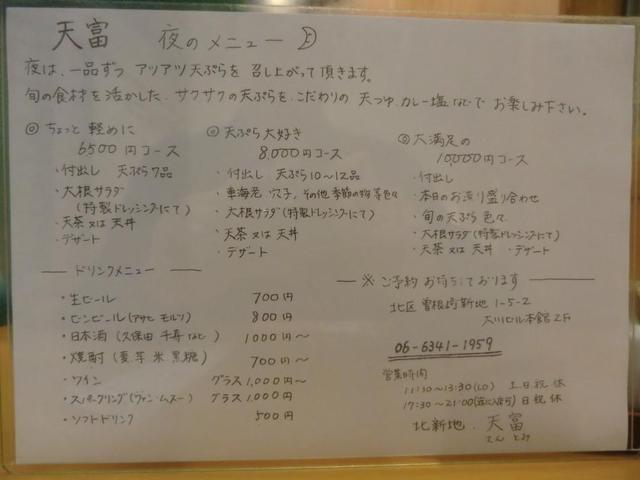 天富 夜のメニュー
夜は、一品ずつ アツアツ天ぷらを 召し上がって頂きます。
旬の食材を活かした、サクサクの天ぷらを、こだわりの 天つゆ、カレー塩などで お楽しみ下さい。
◎ ちょっと 軽めに
6500円コース
・付出し 天ぷら7品
・大根サラダ
(特製ドレッシングにて)
・天茶又は天丼
・デザート
◎ 天ぷら大好き
8,000円コース
・付出し 天ぷら10〜12品
・車海老、穴子、その他季節の物等色々
・大根サラダ(特製ドレッシングにて)
・天茶又は天丼
・デザート
◎ 大満足の
10,000円コース
・付出し
・本日のお造り盛り合わせ
・旬の天ぷら色々
・大根サラダ(特製ドレッシングにて)
・天茶又は天丼 ・デザート
ドリンクメニュー
・生ビール 700円
・ビンビール(アサヒ モルツ) 800円
・日本酒(久保田 千寿など) 1000円〜
・焼酎(麦 芋 米 黒糖) 700円〜
・ワイン グラス1,000円〜
・スパークリング(ヴァン・ムスー) グラス1,000円
・ソフトドリンク 500円
※ ご予約お待ちしております
北区曽根崎新地1-5-2
大川ビル本館2F
06-6341-1959
営業時間
11:30〜13:30(LO) 土日祝休
17:30〜21:00 日祝休
北新地 天富
てんとみ